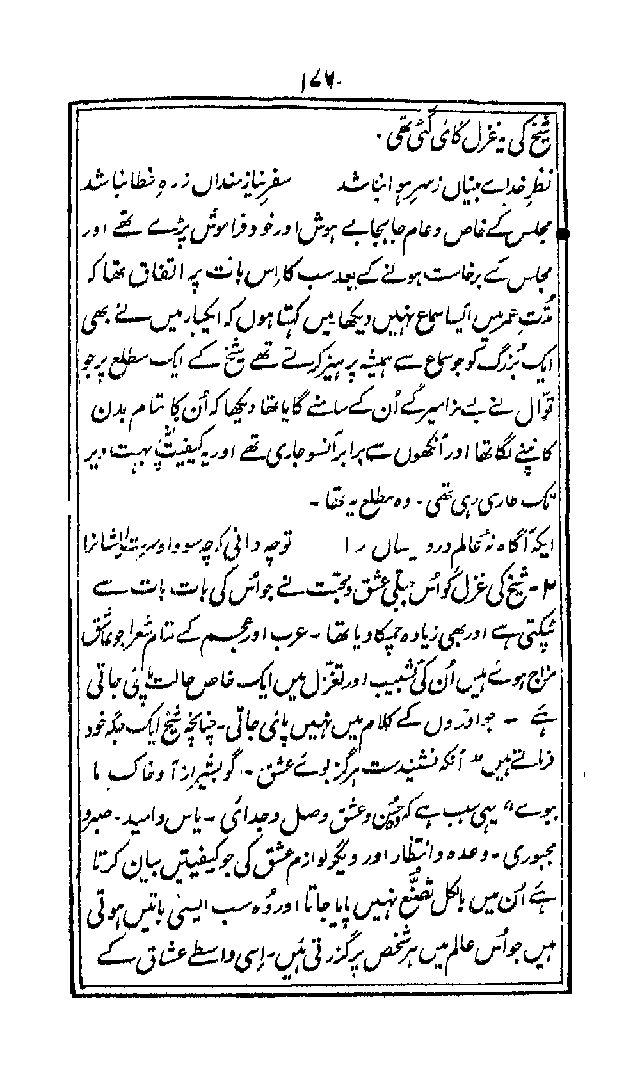 ۱۷۶
شیخ کی یہ غزل گائی گئی تھی۔
نظرِ خدائے بیناں ز سرِ ہوا نباشد سفرِ نیازمنداں ز رہِ خطا نباشد
مجلس کے خاص و عام جا بجا بے ہوش اور خود فراموش پڑے تھے اور
مجلس کے برخاست ہونے کے بعد سب کا اِس بات پر اتفاق تھا کہ
مدّت عمر میں ایسا سماع نہیں دیکھا میں کہتا ہوں کہ ایکبار میں نے بھی
ایک بزرگ کو جو سماع سے ہمیشہ پرہیز کرتے تھے شیخ کے ایک مطلع پر جو
قوّال نے بے مزامیر کے اُن کے سامنے گایا تھا دیکھا کہ اُن کا تمام بدن
کانپنے لگا تھا اور آنکھوں سے برابر آنسو جاری تھے اور یہ کیفیت بہت دیر
تک طاری رہی تھی۔ وہ مطلع یہ تھا۔
ایکہ آگاہ نۂ عالمِ درویشاں را توچہ دانی کہ چہ سودا و سرست ایشانرا
۲۔ شیخ کی غزل کو اُس جبلی عشق و محبت نے جو اُس کی بات بات سے
ٹپکتی ہے اور بھی زیادہ چمکا دیا تھا۔ عرب اور عجم کے تمام شعرا جو عاشق
مزاج ہوئے ہیں اُن کی تشبیب اور تغزّل میں ایک خاص حالت پائی جاتی
ہے۔ جو اوروں کے کلام میں نہیں پائی جاتی۔ چنانچہ شیخ ایک جگہ خود
فرماتے ہیں "آنکہ نشنیدست ہرگز بوئے عشق۔ گو بشیراز آ و خاک ما
ببوے" یہی سبب ہے کہ حُسن و عشق وصل و جدائی۔ یاس و امید۔ صبر و
مجبوری۔ وعدہ و انتظار اور دیگر لوازمِ عشق کی جو کیفیتیں بیان کرتا
ہے اُن میں بالکل تصنّع نہیں پایا جاتا اور وُہ سب ایسی باتیں ہوتی
ہیں جو اُس عالم میں ہر شخص پر گزرتی ہیں۔ اِسی واسطے عشاق کے